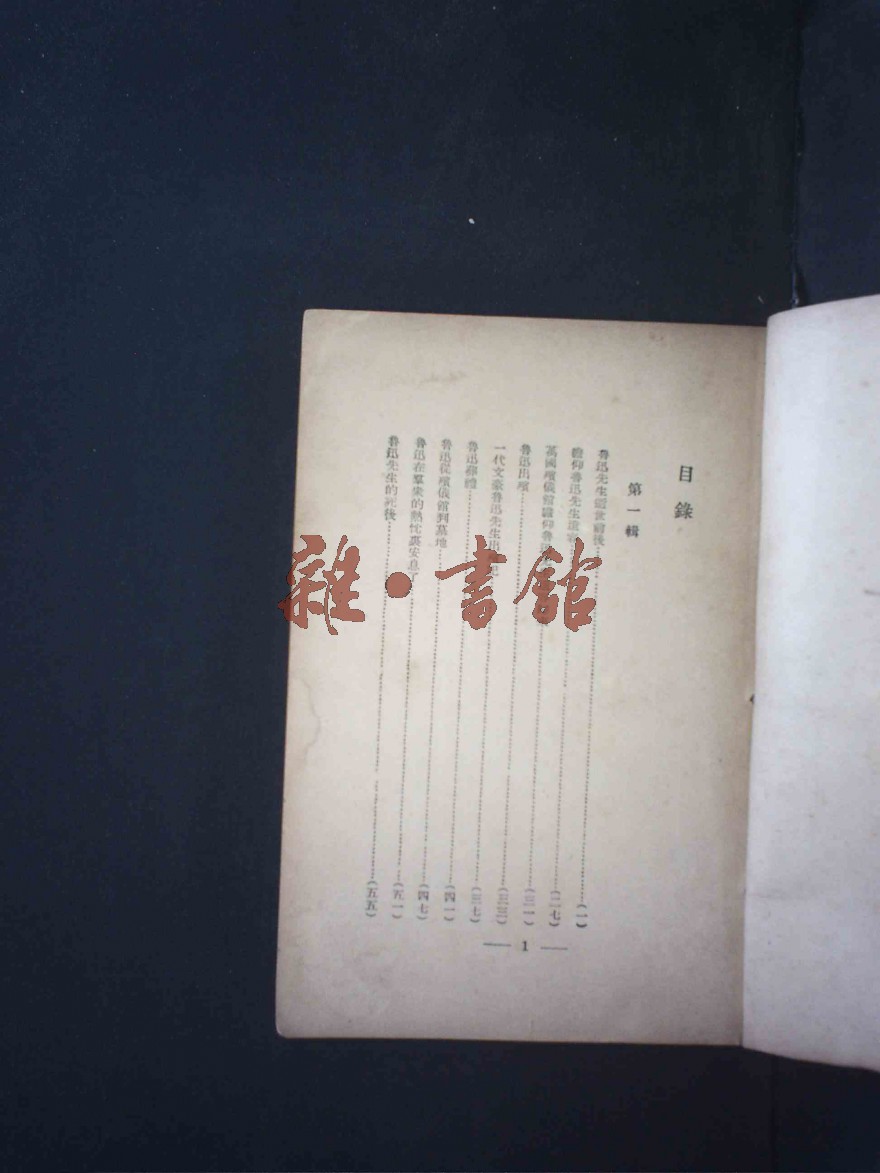 目錄
第一輯
魯迅先生逝世前後……(一)
瞻仰魯迅先生遺容……(二七)
萬國殯儀館瞻仰魯迅……(三一)
魯迅出殯……(三三)
一代文豪魯迅先生出殯記……(三七)
魯迅葬禮……(四一)
魯迅從殯儀館到墓地……(四七)
魯迅在羣衆的熱忱裏安息了……(五一)
魯迅先生的死後……(五五)
— 1 —
雜·書館